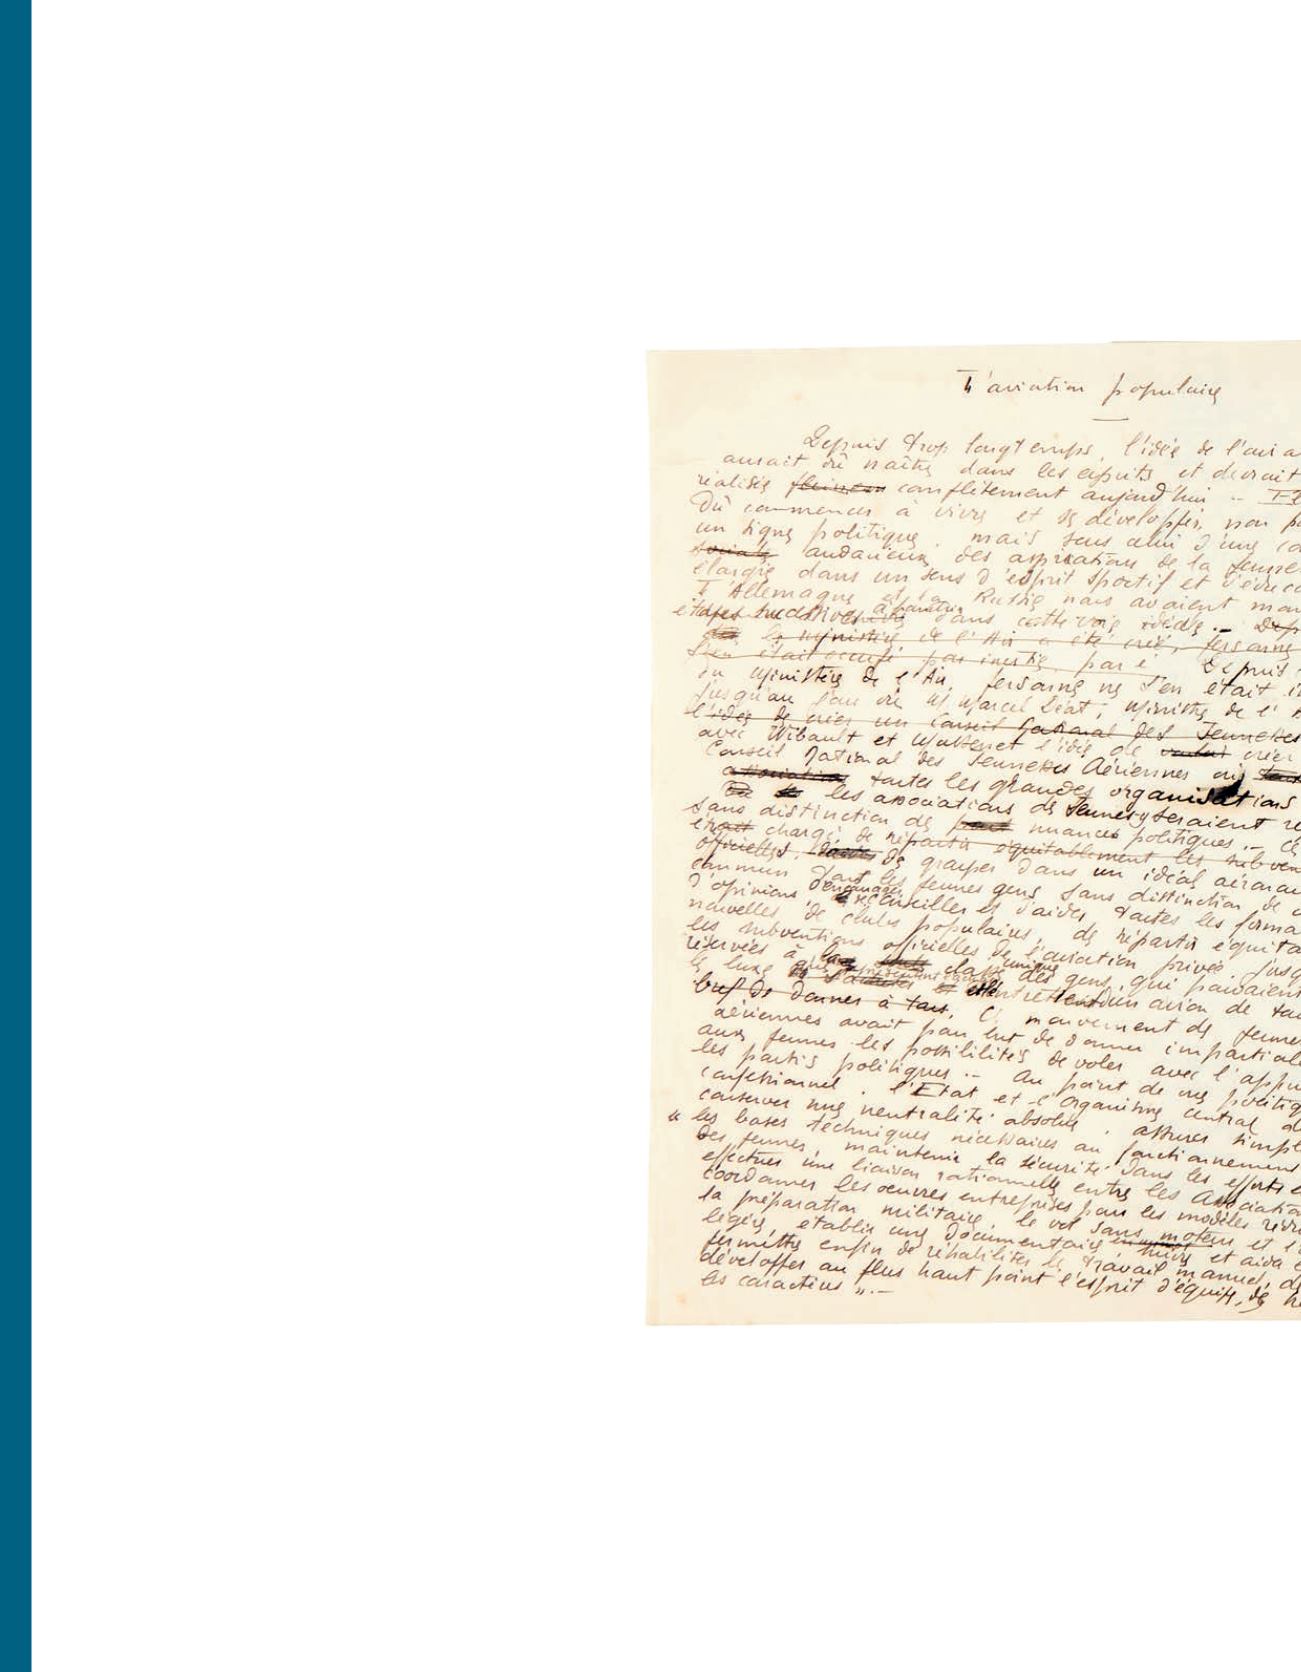 L'aviation populaire
Depuis trop longtemps, l'idée de l'avia
aurait dû naître dans les esprits et devrait
réalisée complètement aujourd'hui ..
Dû commencer à vivre et se développer, non p
un signe politique, mais sous celui d'une co
sociale audacieuse des aspirations de la jeunesse
élargie dans un sens d'esprit sportif et d'éduca
L'Allemagne et la Russie nous avaient mon
dans cette voie idéale .. Dep
le ministère de l'Air a été créé, personne
s'en était occupé par inertie, par Depuis
du Ministère de l'Air, personne ne s'en était
jusqu'au jour où M. Marcel Déat, ministre de l'
l'idée de créer un Conseil National des Jeunesses
avec Wibault et Massenet l'idée de créer
Conseil National des Jeunesses Aériennes où
associations toutes les grandes organisations
les associations de jeunes seraient re
sans distinction de nuances politiques .. Ce
était chargé de répartir équitablement les subven
officielles, de grouper dans un idéal
commun tous les jeunes gens sans distinction de
d'opinions, d'encourager, recueillir et d'aider toutes les forma
nouvelles de clubs populaires, de répartir équita
les subventions officielles de l'aviation privée, jusq
réservées à classe unique des gens, qui pouvaient
le luxe d'un avion de tou
bref de donner à tous, Ce mouvement de jeunes
aériennes avait pour but de donner impartiale
aux jeunes les possibilités de voler avec l'appu
les partis politiques .. Au point de vue politiq
confessionnel, l'Etat et l'organisme central
conserver une neutralité absolue, assurer simple
" les bases techniques nécessaires au fonctionnement
des jeunes, maintenir la sécurité dans les efforts
effectuer une liaison rationnelle entre les Association
coordonner les oeuvres entreprises pour les modèles rédu
la préparation militaire, le vol sans moteur et l'
légère, établir une documentation et aider
permettre enfin de réhabiliter le travail manuel, de
développer au plus haut point l'esprit d'équipe, de
les caractères ". —